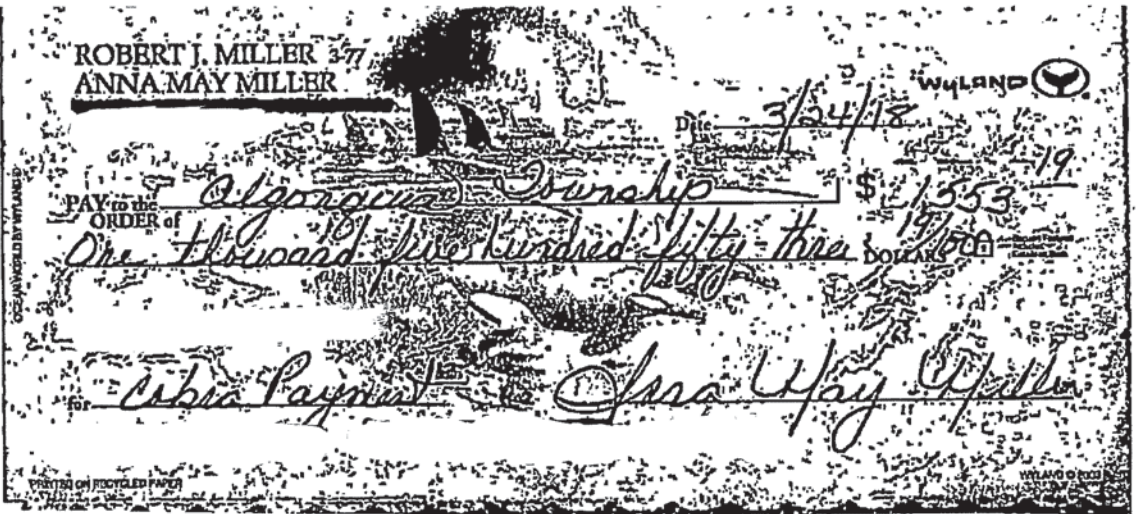 ROBERT J. MILLER 3-77
ANNA MAY MILLER
WYLAND
Date 3/24/18
PAY to the ORDER of Algonquin Township $ 1553 19
One thousand five hundred fifty three 19/100 DOLLARS
OCEAN WORLD BY WYLAND
for Cobra Payment Anna May Miller
PRINTED ON RECYCLED PAPER
WYLAND © 2003